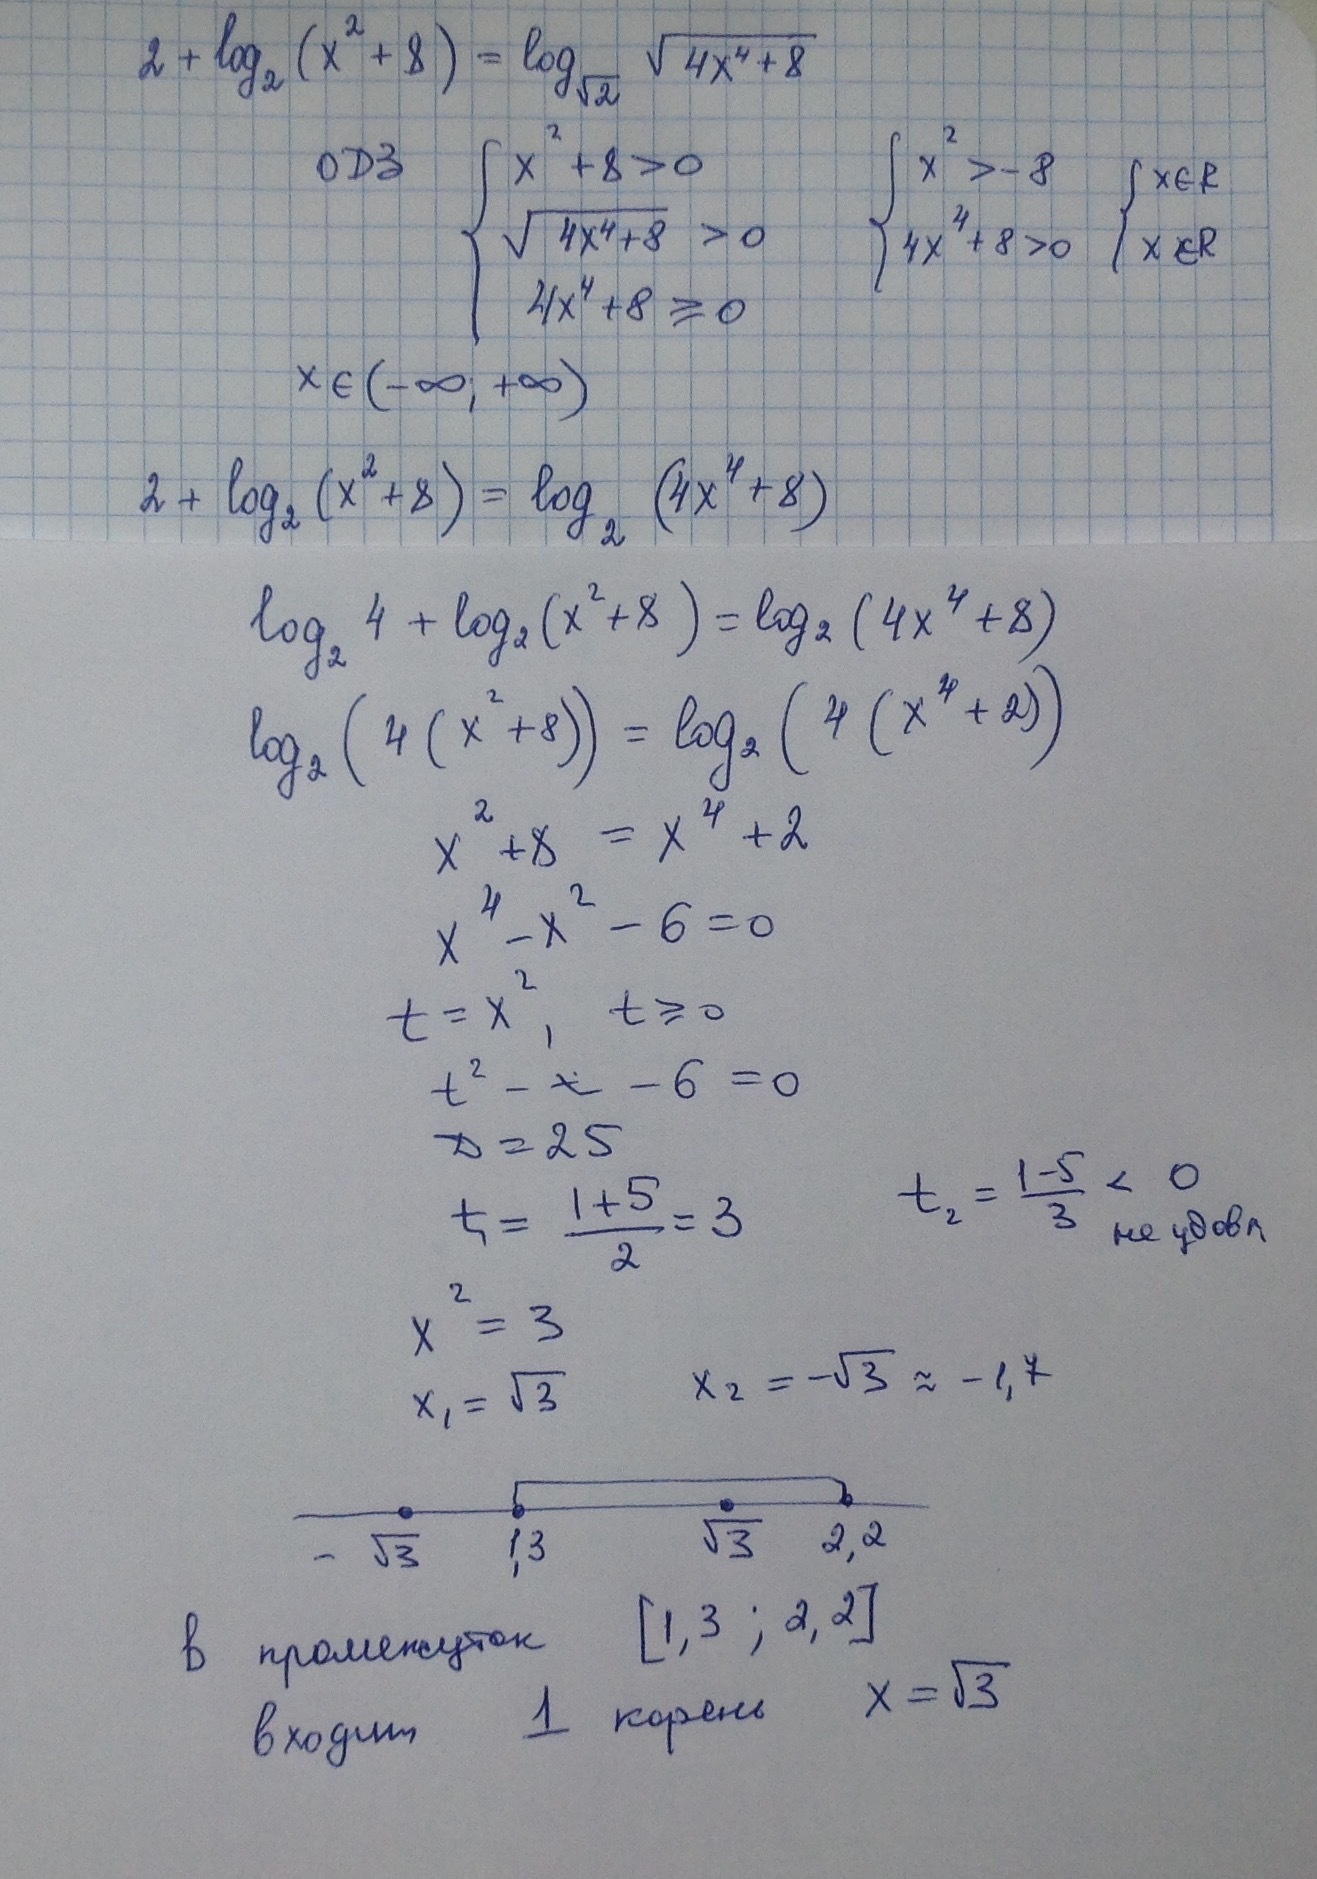 2 + log₂ (x² + 8) = log_√2 √(4x⁴+8)
ОДЗ { x² + 8 > 0 { x² > -8 { x∈R
√(4x⁴+8) > 0 4x⁴ + 8 > 0 x∈R
4x⁴ + 8 ⩾ 0
x ∈ (-∞; +∞)
2 + log₂ (x² + 8) = log₂ (4x⁴ + 8)
log₂ 4 + log₂ (x² + 8) = log₂ (4x⁴ + 8)
log₂ (4 (x² + 8)) = log₂ (4 (x⁴ + 2))
x² + 8 = x⁴ + 2
x⁴ - x² - 6 = 0
t = x², t ⩾ 0
t² - t - 6 = 0
D = 25
t₁ = (1+5)/2 = 3 t₂ = (1-5)/3 < 0
не удовл
x² = 3
x₁ = √3 x₂ = -√3 ≈ -1,7
- √3 1,3 √3 2,2
В промежуток [1,3 ; 2,2]
входит 1 корень x = √3